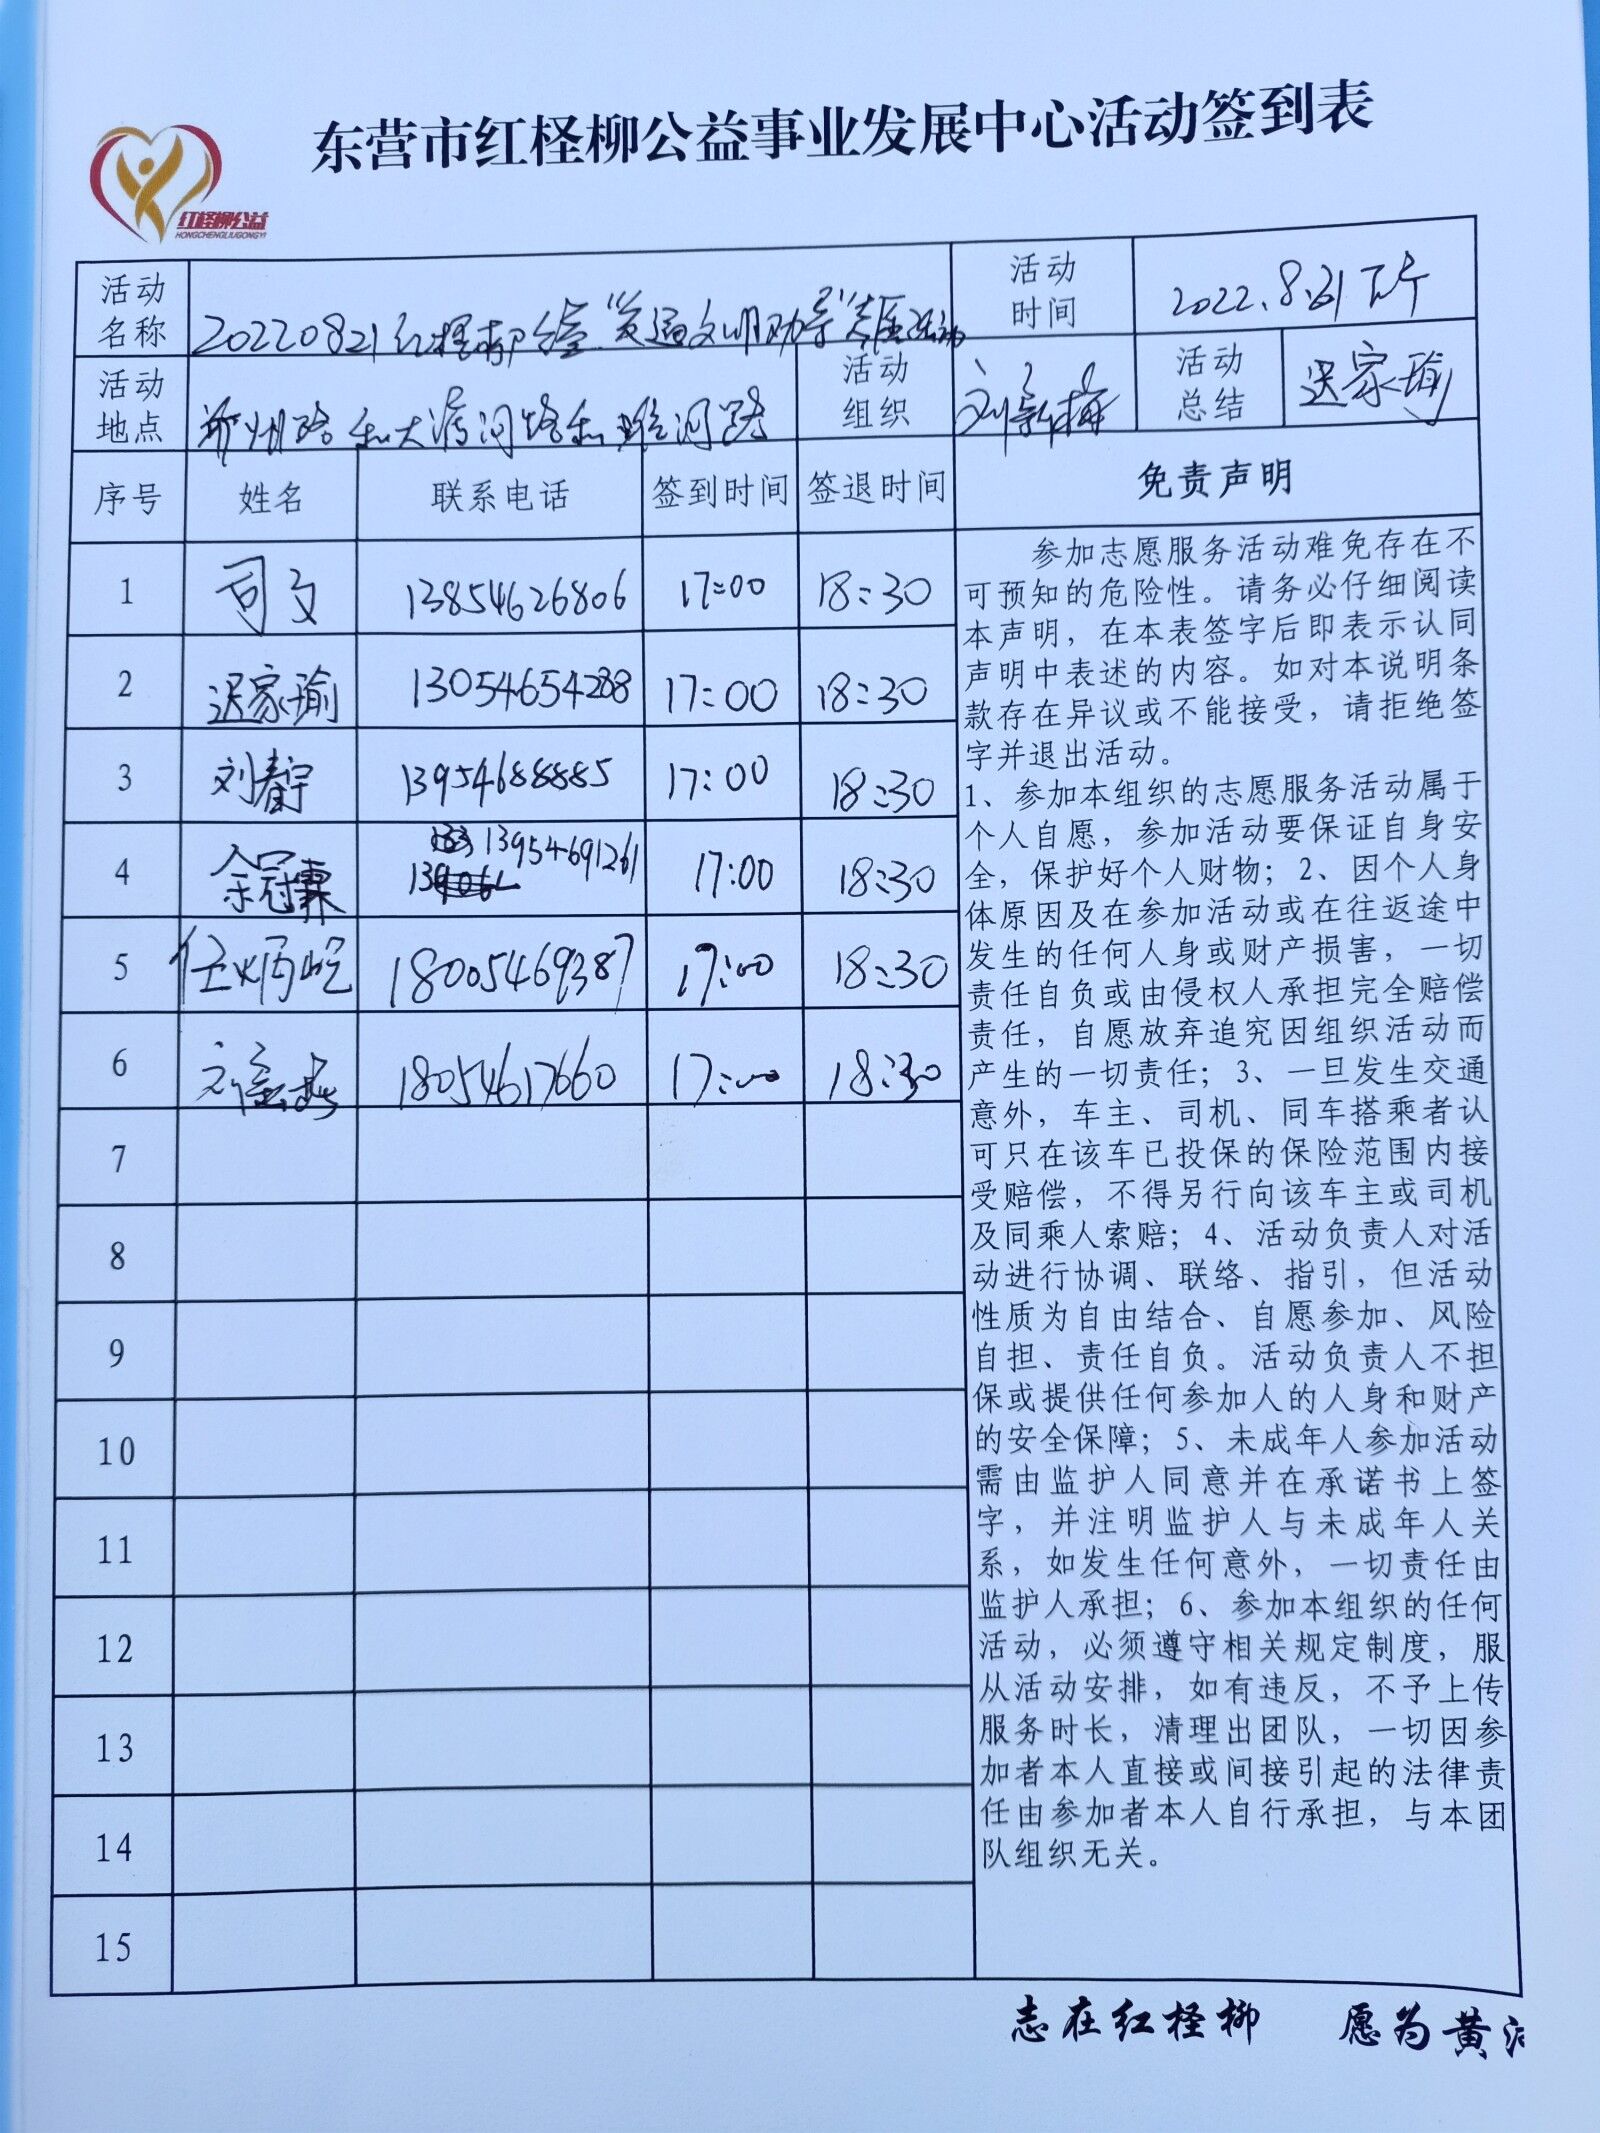 东营市红柽柳公益事业发展中心活动签到表
红柽柳公益
HONGCHENGLIUGONGYI
活动名称 20220821红柽柳 "交通文明助导"志愿活动 活动时间 2022.8.21下午
活动地点 郑州路和大渡河路和淮河路 活动组织 刘新梅 活动总结 迟家瑜
序号 姓名 联系电话 签到时间 签退时间 免责声明
1 司文 13854626806 17:00 18:30
2 迟家瑜 13054654288 17:00 18:30
3 刘春宇 13954688885 17:00 18:30
4 余冠霖 13954691261 17:00 18:30
5 任炳屹 18005469387 17:00 18:30
6 18054617660 17:00 18:30
7
8
9
10
11
12
13
14
15
参加志愿服务活动难免存在不
可预知的危险性。请务必仔细阅读
本声明，在本表签字后即表示认同
声明中表述的内容。如对本说明条
款存在异议或不能接受，请拒绝签
字并退出活动。
1、参加本组织的志愿服务活动属于
个人自愿，参加活动要保证自身安
全，保护好个人财物；2、因个人身
体原因及在参加活动或在往返途中
发生的任何人身或财产损害，一切
责任自负或由侵权人承担完全赔偿
责任，自愿放弃追究因组织活动而
产生的一切责任；3、一旦发生交通
意外，车主、司机、同车搭乘者认
可只在该车已投保的保险范围内接
受赔偿，不得另行向该车主或司机
及同乘人索赔；4、活动负责人对活
动进行协调、联络、指引，但活动
性质为自由结合、自愿参加、风险
自担、责任自负。活动负责人不担
保或提供任何参加人的人身和财产
的安全保障；5、未成年人参加活动
需由监护人同意并在承诺书上签
字，并注明监护人与未成年人关
系，如发生任何意外，一切责任由
监护人承担；6、参加本组织的任何
活动，必须遵守相关规定制度，服
从活动安排，如有违反，不予上传
服务时长，清理出团队，一切因参
加者本人直接或间接引起的法律责
任由参加者本人自行承担，与本团
队组织无关。
志在红柽柳 愿为黄河